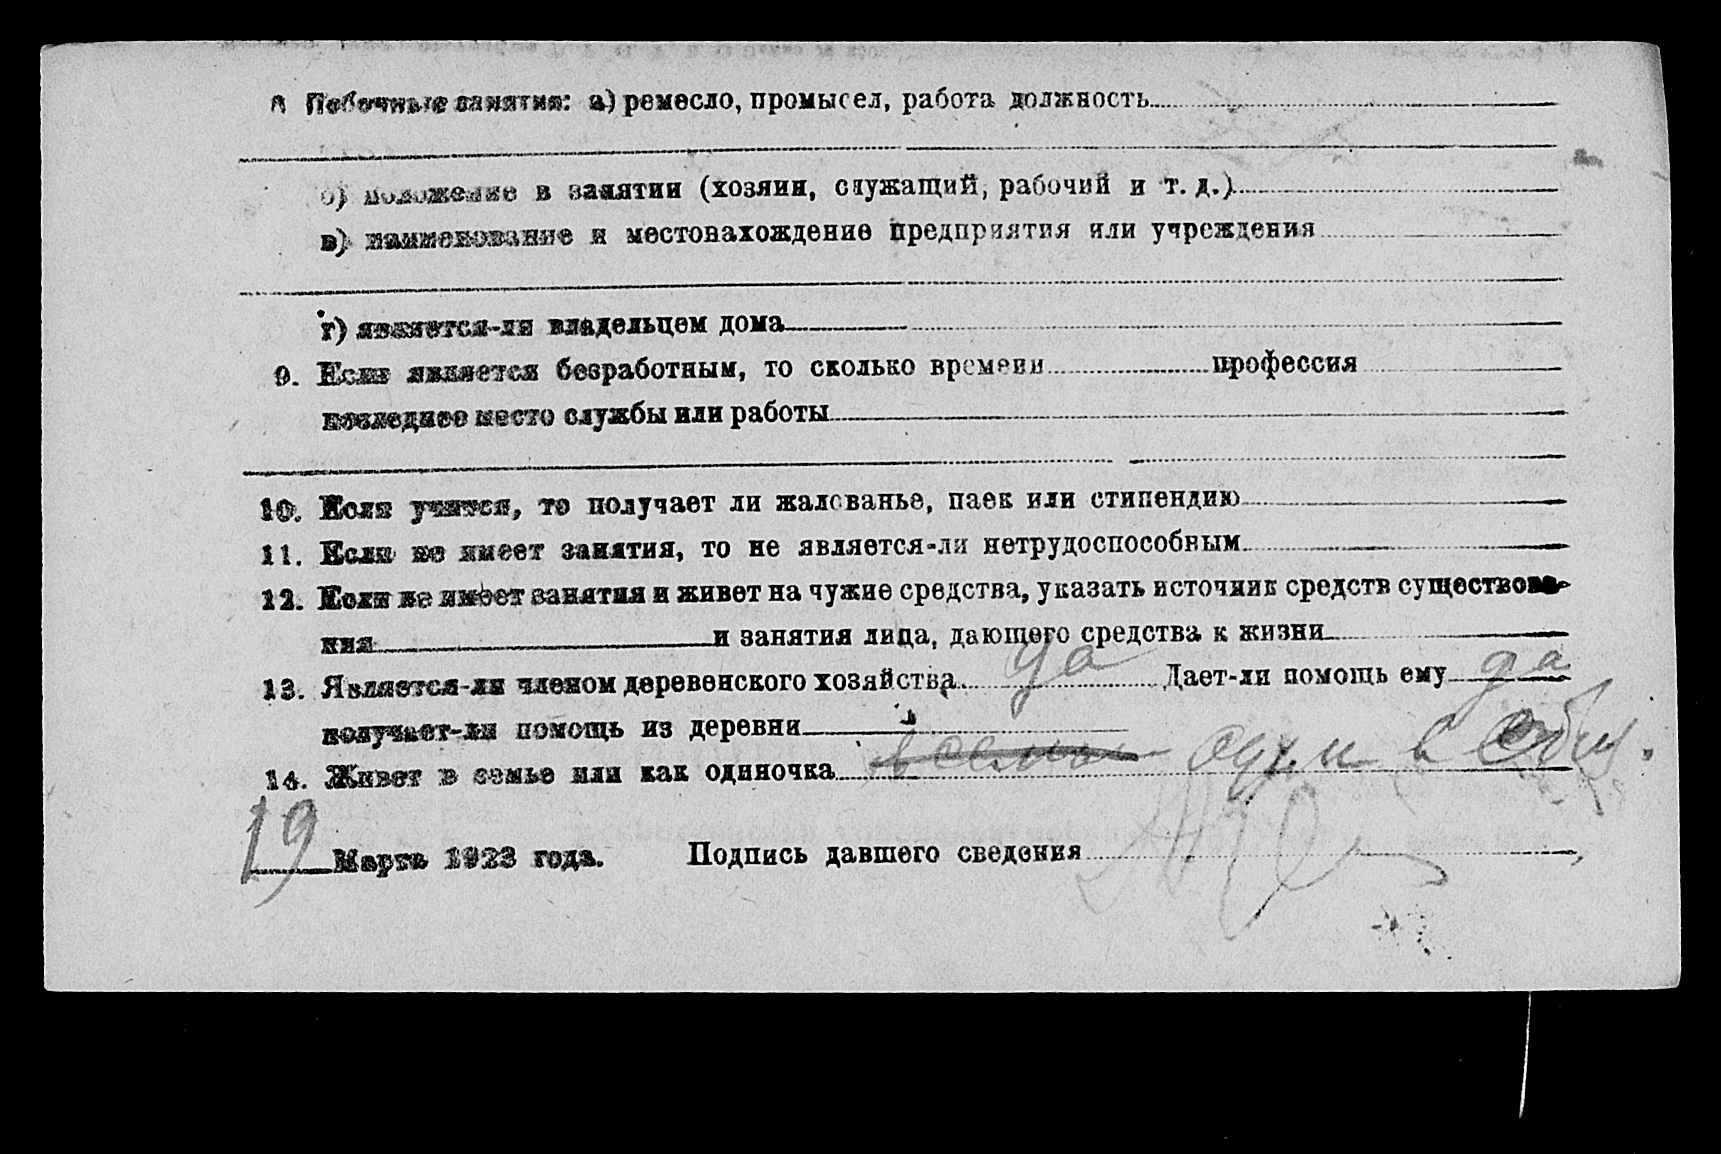 Побочные занятия: а) ремесло, промысел, работа должность
б) положение в занятии (хозяин, служащий, рабочий и т. д.)
в) наименование и местонахождение предприятия или учреждения
г) является-ли владельцем дома
9. Если является безработным, то сколько времени профессия
последнее место службы или работы
10. Если учится, то получает ли жалованье, паек или стипендию
11. Если не имеет занятия, то не является-ли нетрудоспособным
12. Если не имеет занятия и живет на чужие средства, указать источник средств существова-
ния и занятия лица, дающего средства к жизни
13. Является-ли членом деревенского хозяйства да Дает-ли помощь ему да
получает-ли помощь из деревни
14. Живет в семье или как одиночка один в
19 Марта 1923 года. Подпись давшего сведения